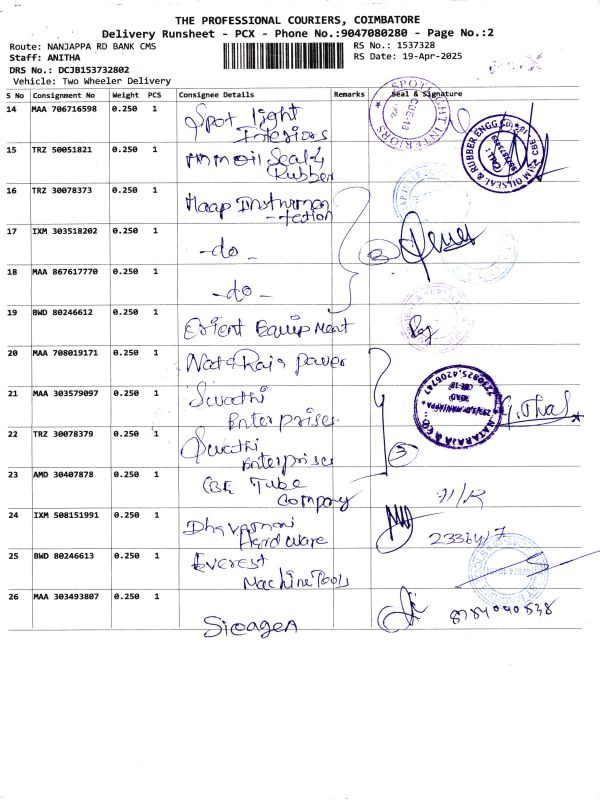 THE PROFESSIONAL COURIERS, COIMBATORE
Delivery Runsheet - PCX - Phone No.:9047080280 - Page No.:2
Route: NANJAPPA RD BANK CMS
RS No.: 1537328
Staff: ANITHA
RS Date: 19-Apr-2025
DRS No.: DCJB153732802
Vehicle: Two Wheeler Delivery
S No Consignment No Weight PCS Consignee Details Remarks Seal & Signature
14 MAA 706716598 0.250 1 Spot light
Interiors
15 TRZ 50051821 0.250 1 Mm oil Seal &
Rubber
16 TRZ 30078373 0.250 1 Maap Instrumen
-tation
17 IXM 303518202 0.250 1 -do-
18 MAA 867617770 0.250 1 -do-
19 BWD 80246612 0.250 1 Orient Equipment
20 MAA 708019171 0.250 1 Nataraja power
21 MAA 303579097 0.250 1 Swathi
Enterprises.
22 TRZ 30078379 0.250 1 Swathi
Enterprises
23 AMD 30407878 0.250 1 CBE Tube
Company
24 IXM 508151991 0.250 1 Dhavamani
Hardware
25 BWD 80246613 0.250 1 Everest
Machine Tools
26 MAA 303493807 0.250 1
Sicagen
SPOT LIGHT INTERIORS
CBE-18
OILSEAL & RUBBER ENGG Co.,
3
3
G. Thas
NATARAJA & CO.